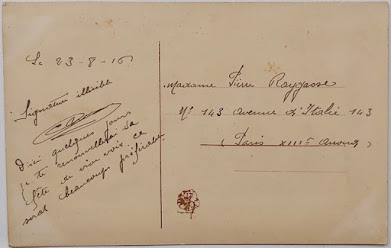 Le 23-8-16
Signature illisible
D'ici quelques jours
je te renouvellerai sa
fête de vive voix ce
serait beaucoup préférable
Madame Pierre Raygasse
Nº 143 Avenue d'Italie 143
(Paris XIIIème Arrond